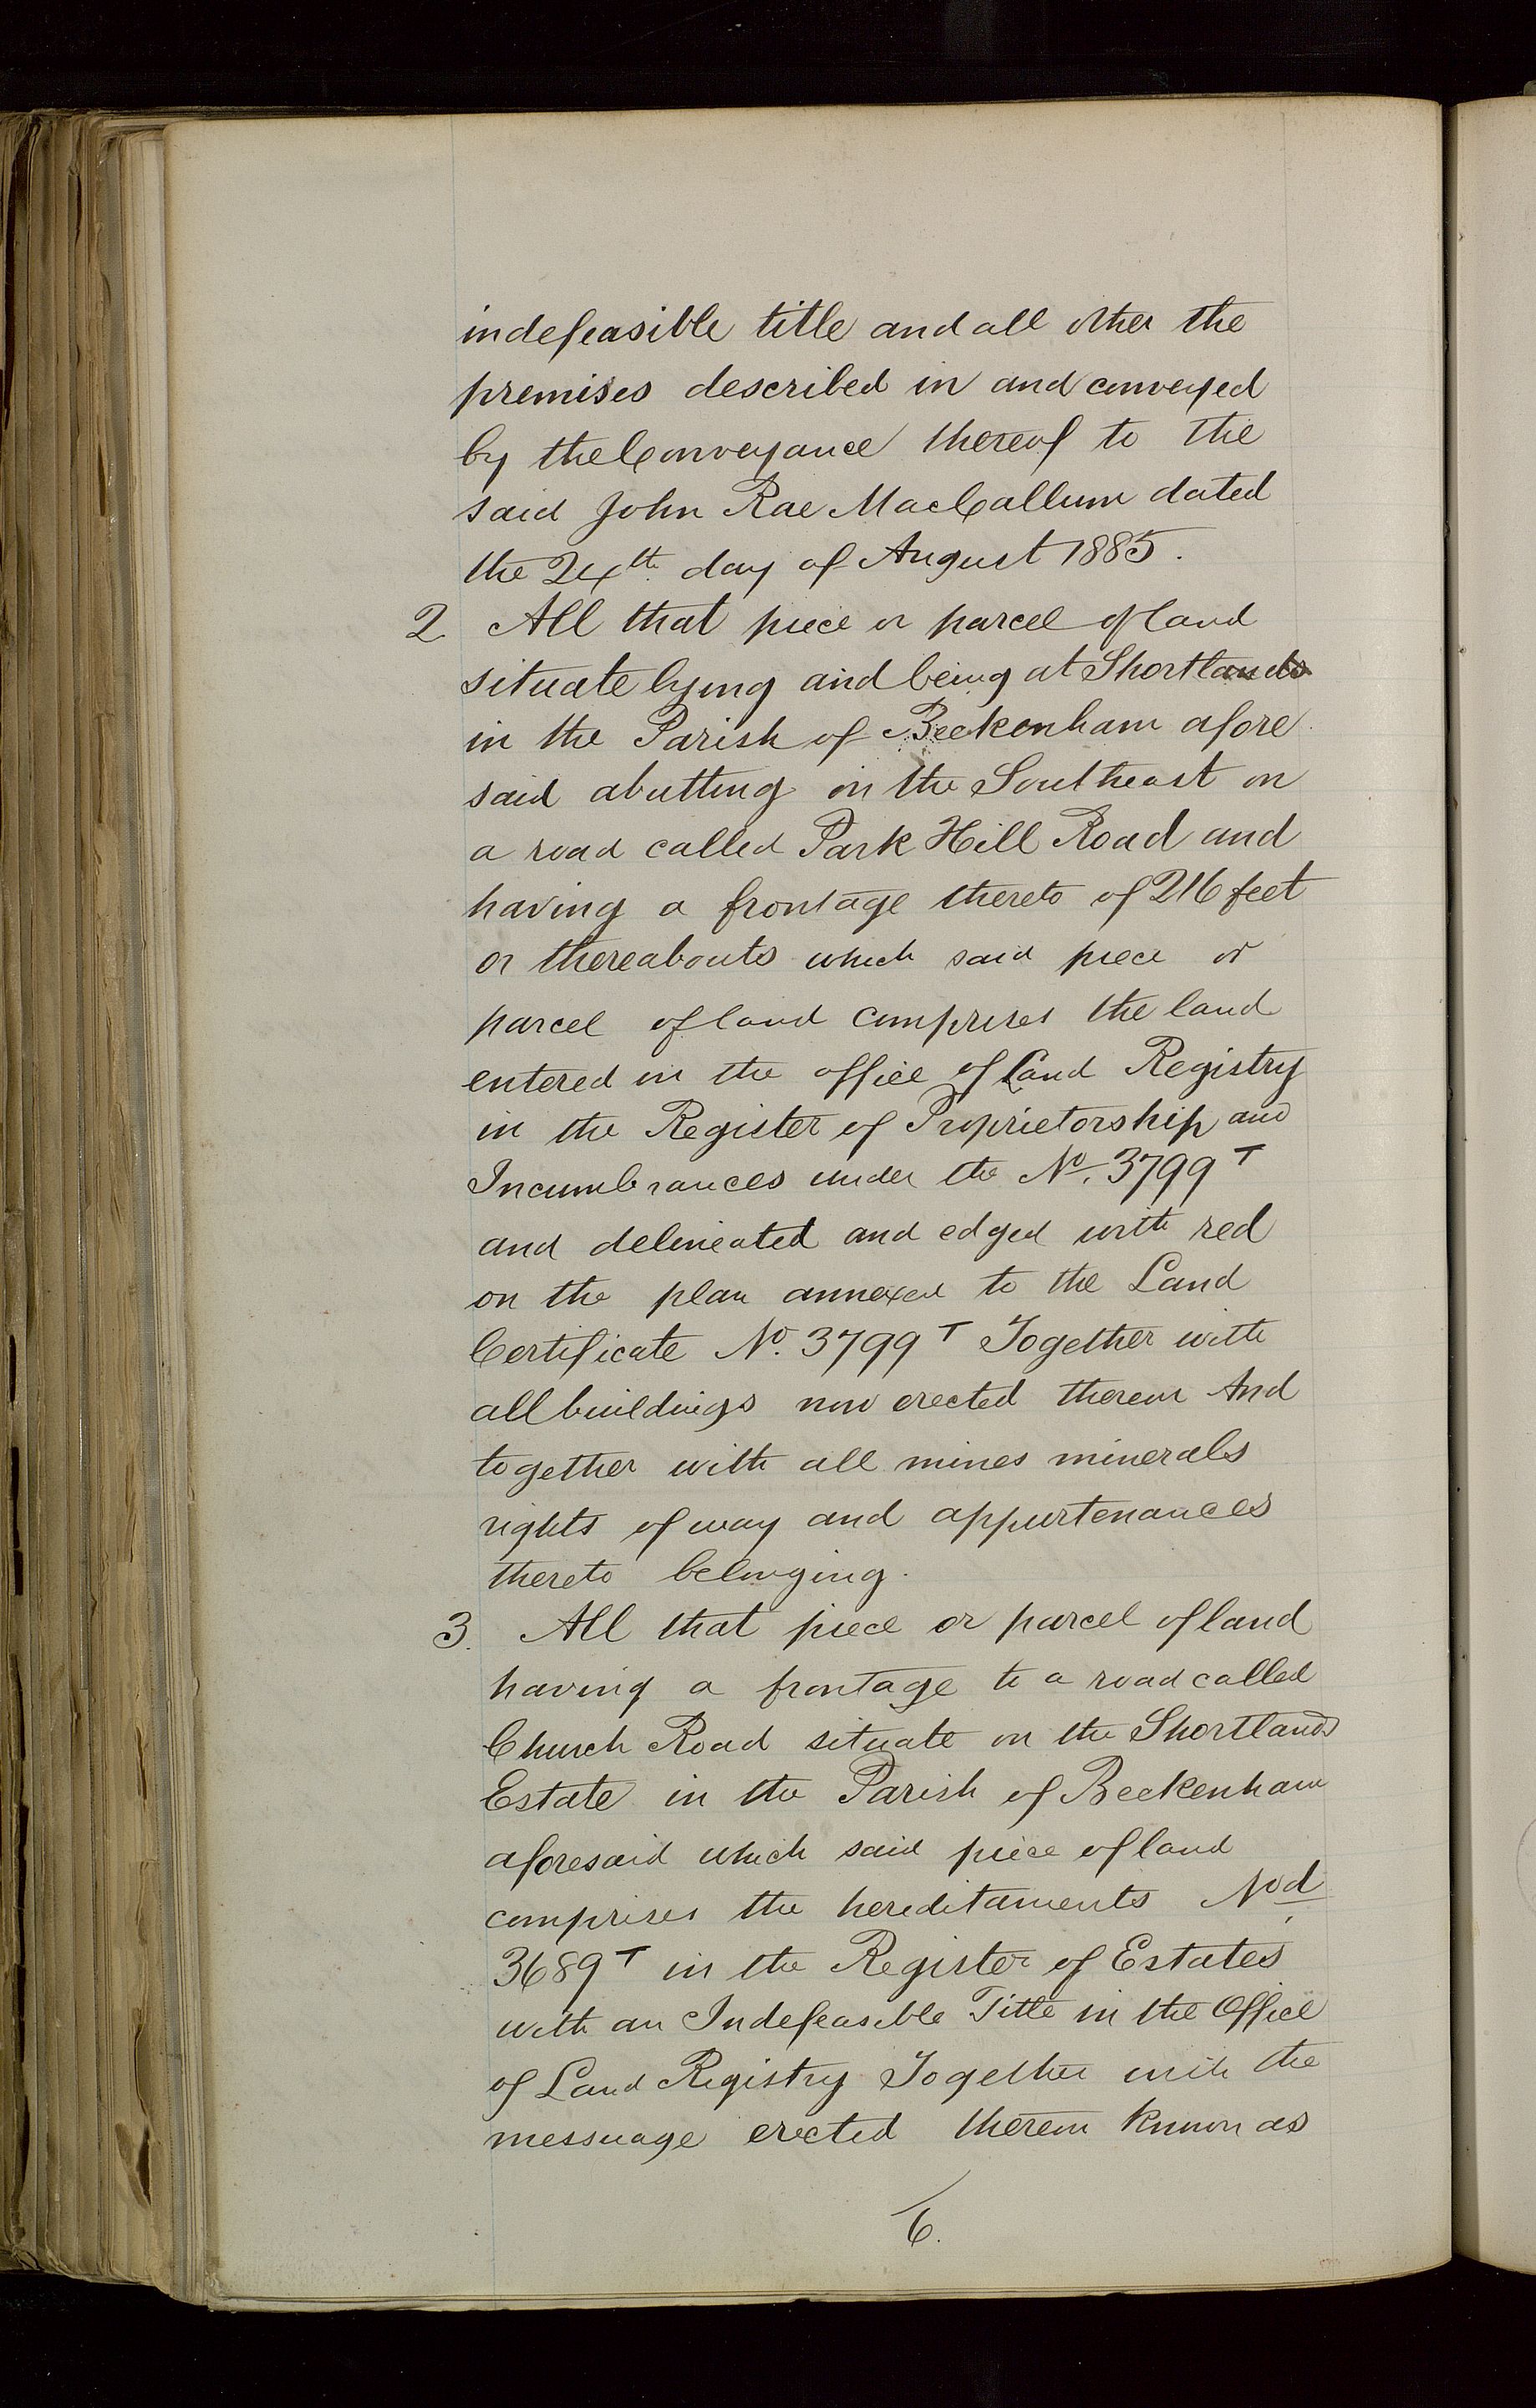 indefeasible title and all other the
premises described in and conveyed
by the Conveyance thereof to the
said John Rae MacCallum dated
the 24th day of August 1885.
2 All that piece or parcel of land
situate lying and being at Shortlands
in the Parish of Beckenham afore
said abutting on the Southeast on
a road called Park Hill Road and
having a frontage thereto of 216 feet
or thereabouts which said piece or
parcel of land comprises the land
entered in the office of Land Registry
in the Register of Proprietorship and
Incumbrances under the No. 3799 T
and delineated and edged with red
on the plan annexed to the Land
Certificate No. 3799 T Together with
all buildings now erected thereon And
together with all mines minerals
rights of way and appurtenances
thereto belonging.
3. All that piece or parcel of land
having a frontage to a road called
Church Road situate on the Shortlands
Estate in the Parish of Beckenham
aforesaid which said piece of land
comprises the hereditaments Nod
3689 T in the Register of Estates
with an Indefeasible Title in the Office
of Land Registry Together with the
messuage erected thereon known as
6.